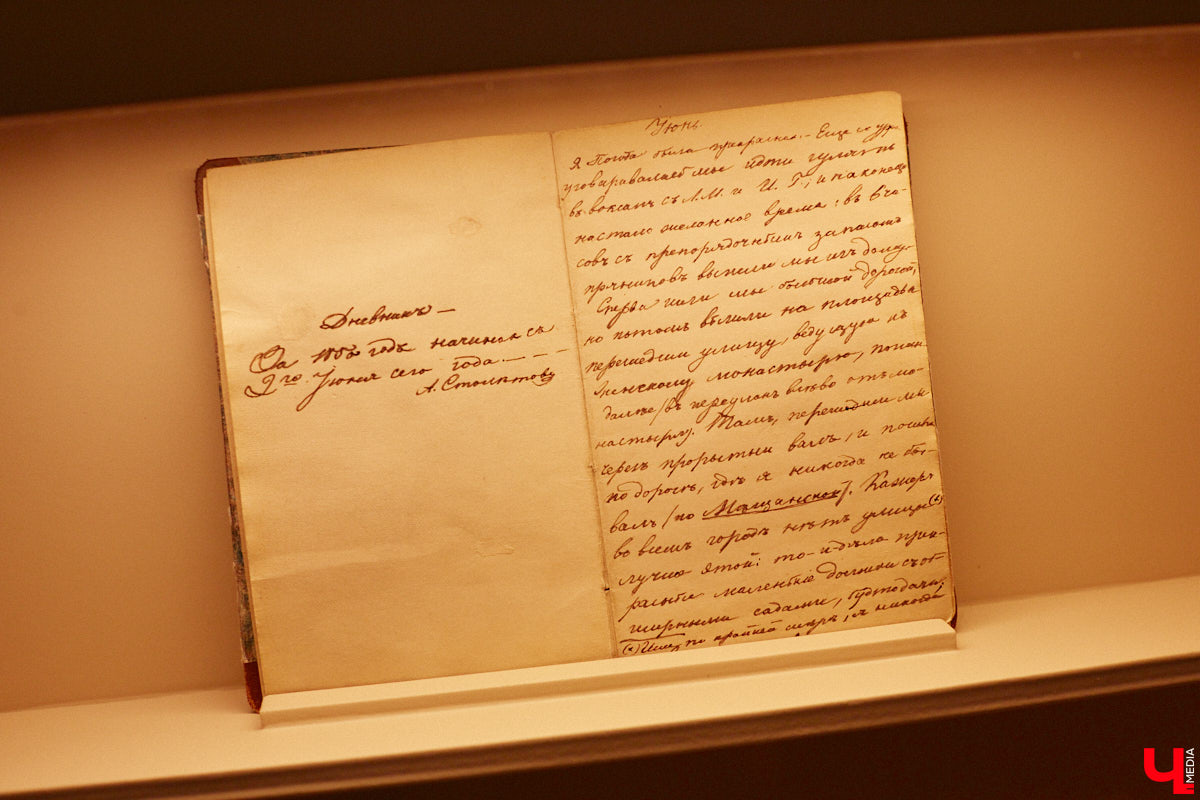 Дневникъ —
За 1858 годъ начиная съ
2го Июня сего года. — — —
А. Столѣтовъ
Июнь.
Я Погода была прекрасная. — Еще съ
уговаривались мы идти гулять
въ вокзалъ съ А. М. и И. Г.; и наконецъ
настало желанное время: въ 6 ча-
совъ съ препорядочнымъ запасомъ
пряниковъ вышли мы изъ дому.
Сперва шли мы большой дорогой,
но потомъ вышли на площадь
перешедши улицу, ведущую къ
монастырю, пошли
далѣе въ переулокъ влѣво отъ мо-
настыря. Тамъ, перешедши мы
черезъ прорытый валъ, и пошли
по дорогѣ, гдѣ я никогда не бы-
валъ (по Мѣщанской).
во всемъ городѣ нѣтъ улицы (*)
лучше этой: то-и-дѣло
маленькіе домики съ об-
ширными садами,
(*) по крайней мѣрѣ, я никогда
Ч
MEDIA